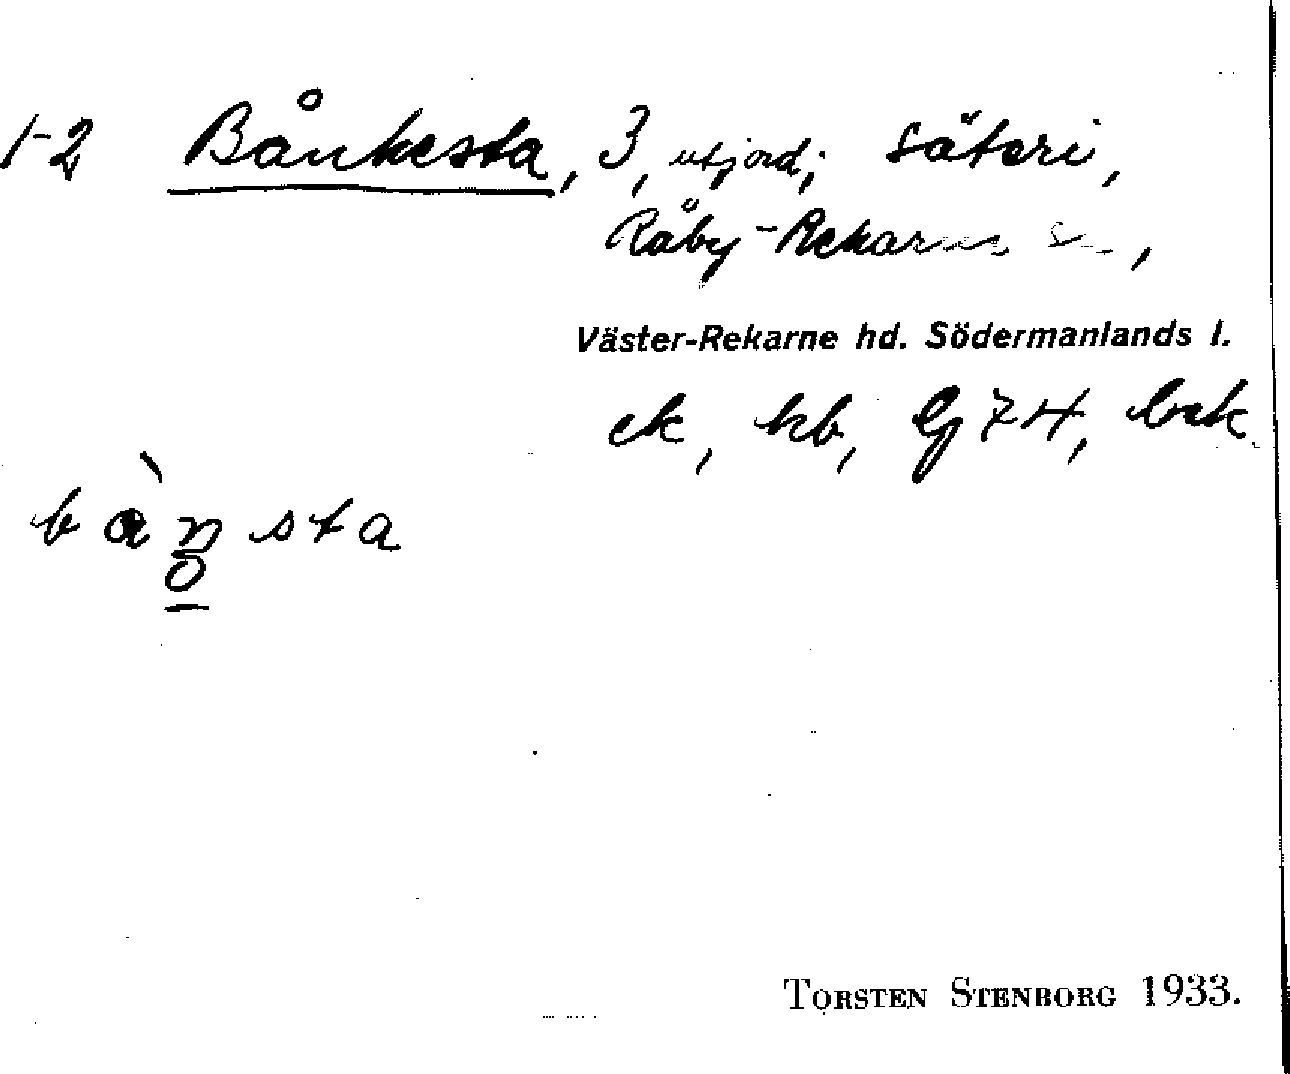 1-2 Bånkesta, 3, utjord; säteri,
Råby-Rekarne sn,
Väster-Rekarne hd. Södermanlands l.
ek, kb, Gj 74, bsk
bànsta
TORSTEN STENBORG 1933.